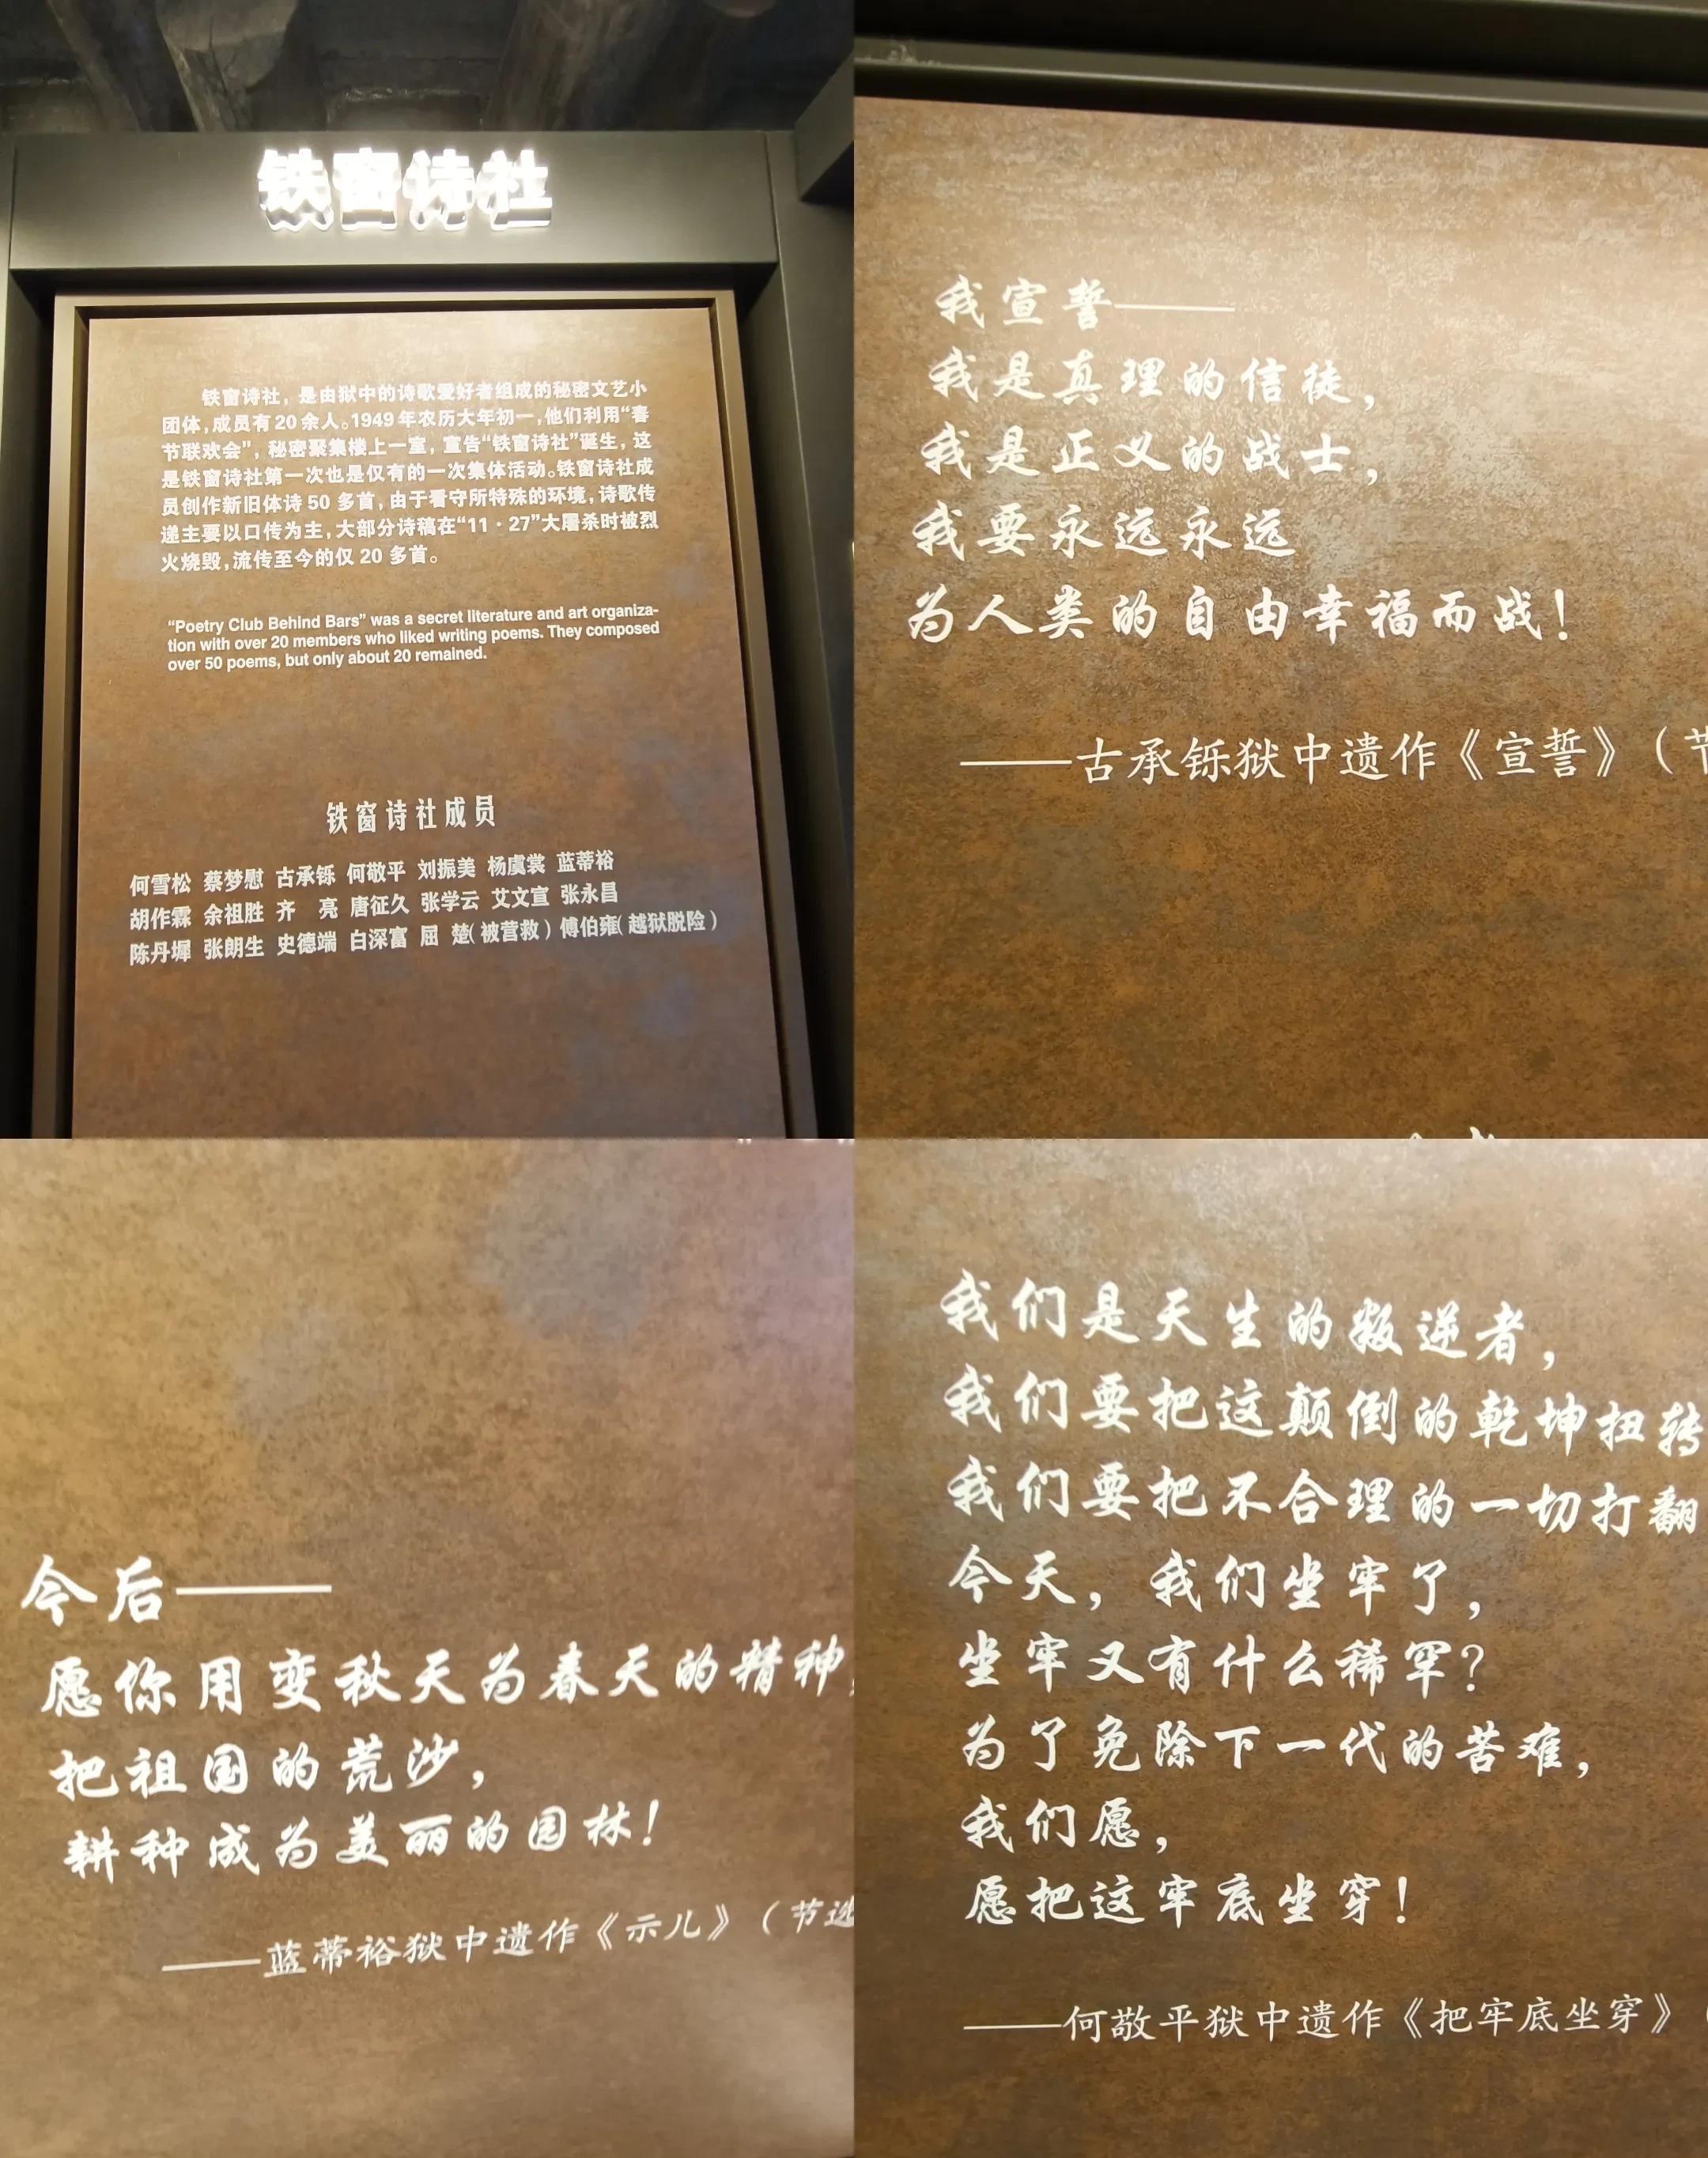 铁窗诗社
铁窗诗社，是由狱中的诗歌爱好者组成的秘密文艺小
团体，成员有20余人。1949年农历大年初一，他们利用“春
节联欢会”，秘密聚集楼上一室，宣告“铁窗诗社”诞生，这
是铁窗诗社第一次也是仅有的一次集体活动。铁窗诗社成
员创作新旧体诗50多首，由于看守所特殊的环境，诗歌传
递主要以口传为主，大部分诗稿在“11·27”大屠杀时被烈
火烧毁，流传至今的仅20多首。
“Poetry Club Behind Bars” was a secret literature and art organiza-
tion with over 20 members who liked writing poems. They composed
over 50 poems, but only about 20 remained.
铁窗诗社成员
何雪松 蔡梦慰 古承铄 何敬平 刘振美 杨虞裳 蓝蒂裕
胡作霖 余祖胜 齐 亮 唐征久 张学云 艾文宣 张永昌
陈丹墀 张朗生 史德端 白深富 屈 楚(被营救) 傅伯雍(越狱脱险)
我宣誓——
我是真理的信徒，
我是正义的战士，
我要永远永远
为人类的自由幸福而战！
——古承铄狱中遗作《宣誓》（节
今后——
愿你用变秋天为春天的精神，
把祖国的荒沙，
耕种成为美丽的园林！
——蓝蒂裕狱中遗作《示儿》（节选
我们是天生的叛逆者，
我们要把这颠倒的乾坤扭转
我们要把不合理的一切打翻
今天，我们坐牢了，
坐牢又有什么稀罕？
为了免除下一代的苦难，
我们愿，
愿把这牢底坐穿！
——何敬平狱中遗作《把牢底坐穿》